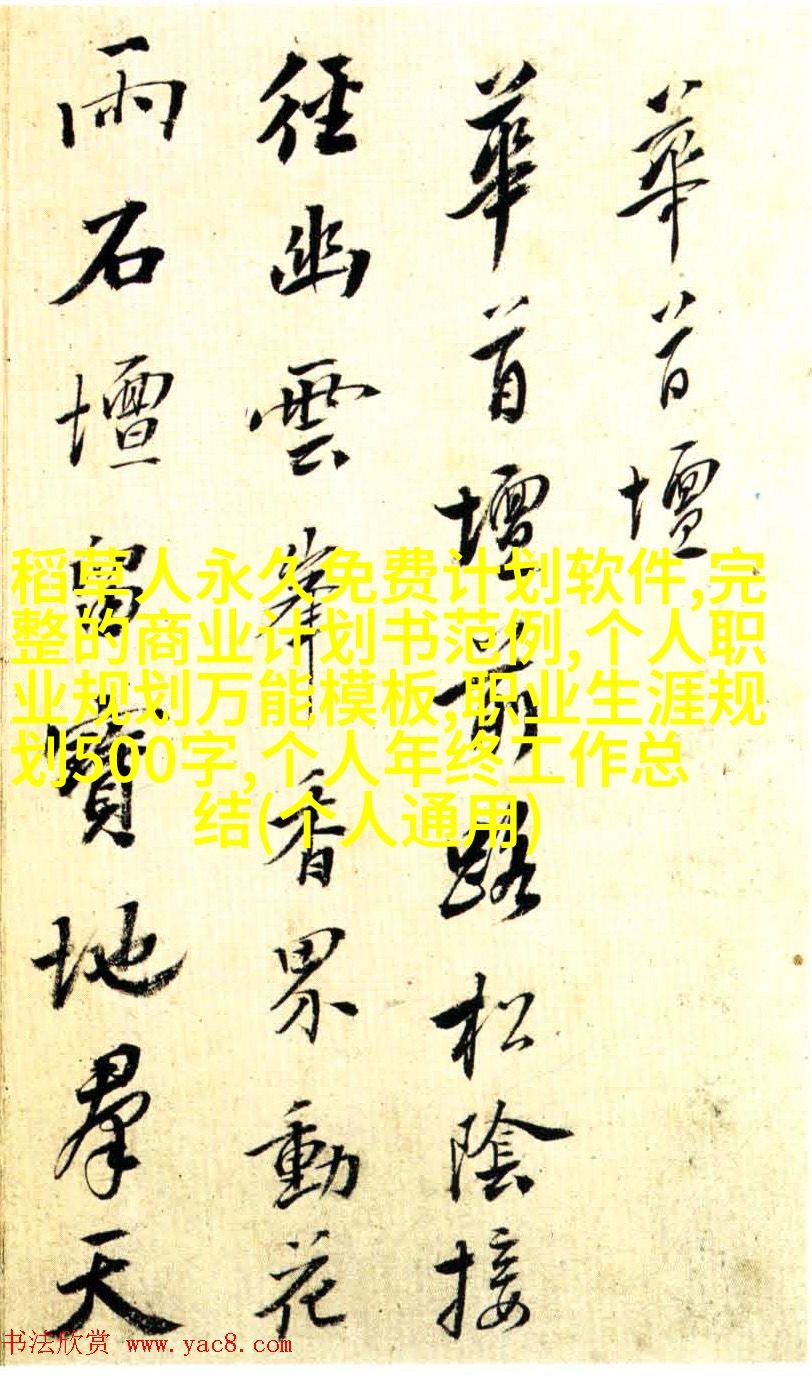 華首壇
華首壇前路松陰接
徑幽雲峯香界動花
雨石壇留寶地羣天
稻草人永久免费计划软件,完
整的商业计划书范例,个人职
业规划万能模板,职业生涯规
划500字,个人年终工作总
结(个人通用)
书法欣赏 www.yac8.com